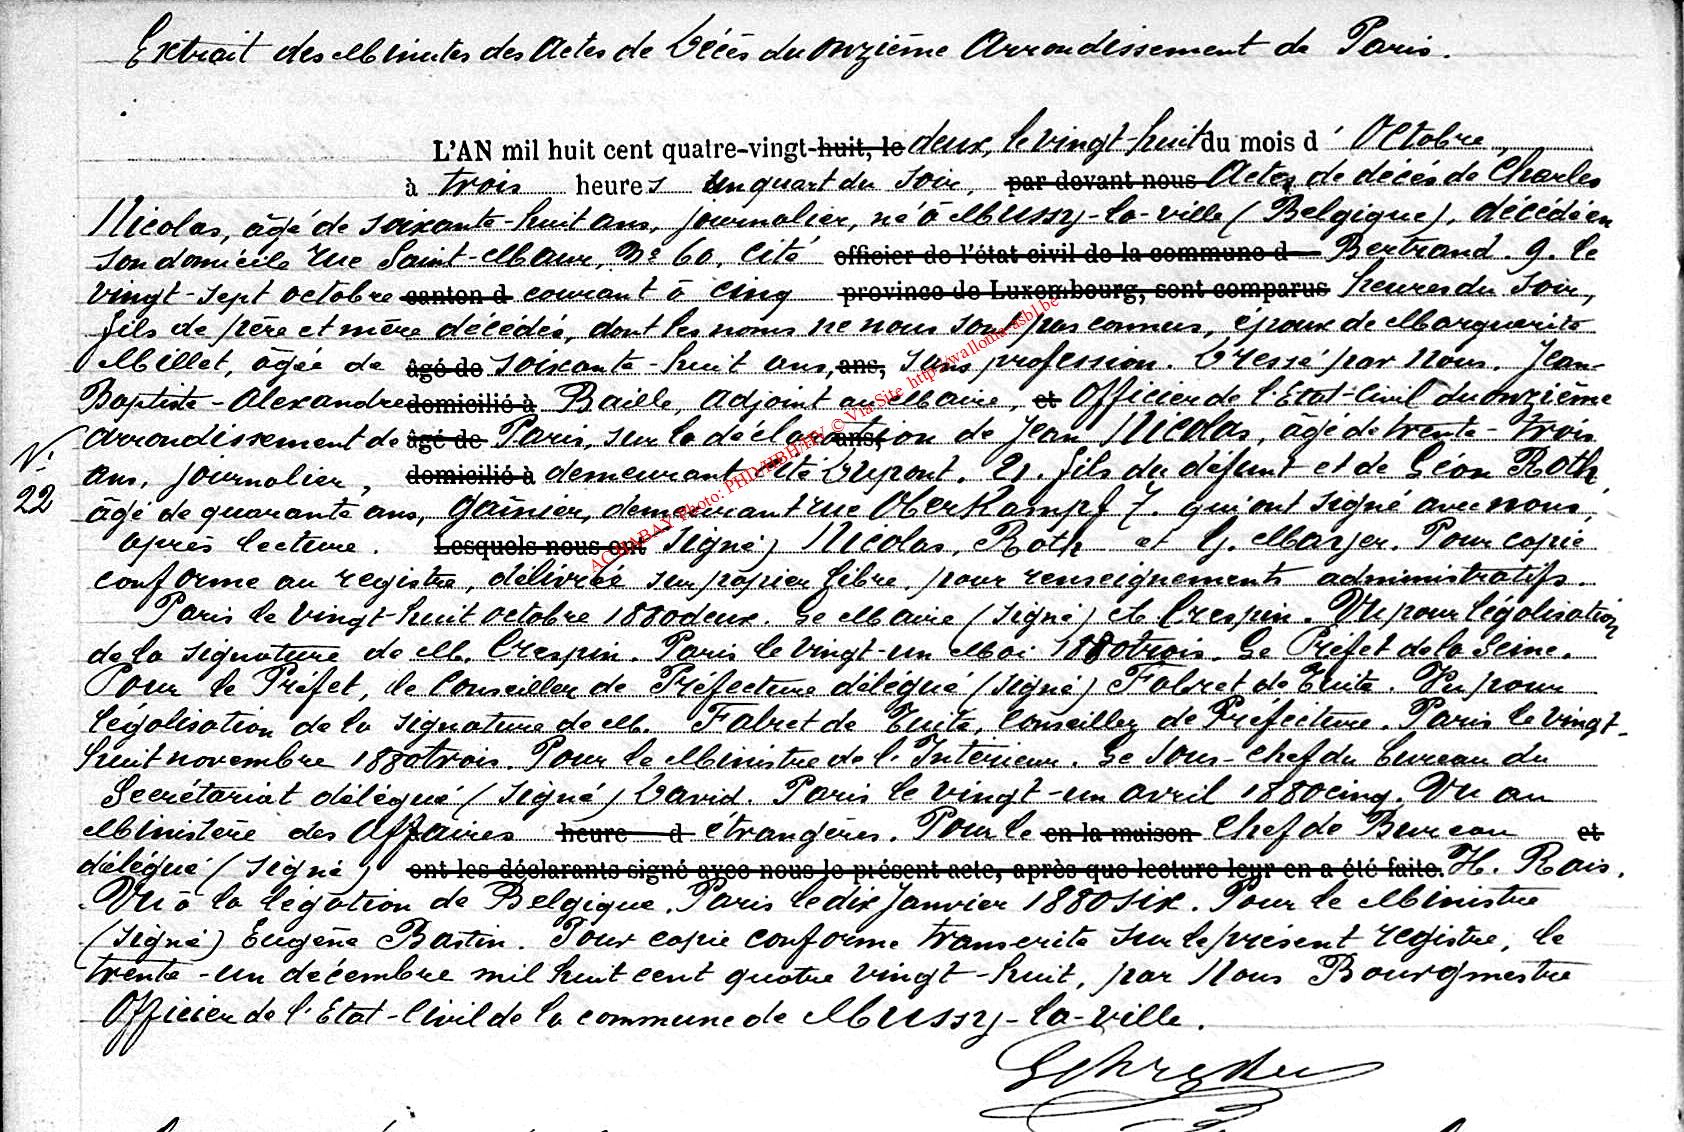 Extrait des Minutes des Actes de Décès du onzième Arrondissement de Paris.
L'AN mil huit cent quatre-vingt-huit, le deux, le vingt-huit du mois d' Octobre,
à trois heures un quart du soir, par devant nous Acte de décès de Charles
Nicolas, âgé de soixante-huit ans, journalier, né à Mussy-la-ville (Belgique), décédé en
son domicile rue Saint-Maur, No 60, Cité officier de l'état civil de la commune d Bertrand. 9. le
vingt-sept octobre canton d courant à cinq province de Luxembourg, sont comparus heures du soir,
fils de père et mère décédés, dont les noms ne nous sont pas connus, époux de Marguerite
Millet, âgée de âgé de soixante-huit ans, ans, sans profession. Dressé par Nous, Jean-
Baptiste-Alexandre domicilié à Baille, adjoint au Maire, et Officier de l'Etat-Civil du onzième
arrondissement de âgé de Paris, sur la déclaration ans, de Jean Nicolas, âgé de trente-trois
N.
22
ans, journalier, domicilié à demeurant Cité Dupont. 21. fils du défunt et de Léon Roth
âgé de quarante ans, gaînier, demeurant rue Oberkampf 7. qui ont signé avec nous,
après lecture. Lesquels nous ont Signé) Nicolas, Roth et
Pour copie
conforme au registre, délivrée sur papier libre, pour renseignements administratifs.
Paris le vingt-huit octobre 1880deux. Le Maire (signé) Crespin. Vu pour légalisation
de la signature de M. Crespin. Paris le vingt-un Mai 1880trois. Le Préfet de la Seine.
Pour le Préfet, le Conseiller de Préfecture délégué (signé) Fabret de Tuite. Vu pour
légalisation de la signature de M. Fabret de Tuite, Conseiller de Préfecture. Paris le vingt-
huit novembre 1880trois. Pour le Ministre de l'Intérieur. Le Sous-Chef du bureau du
Secrétariat délégué (signé) David. Paris le vingt-un avril 1880cinq. Vu au
Ministère des Affaires heure d étrangères. Pour le en la maison Chef de Bureau et
délégué (signé) ont les déclarants signé avec nous le présent acte, après que lecture leur en a été faite. H. Rais.
Vu à la légation de Belgique. Paris le dix Janvier 1880six. Pour le Ministre
(Signé) Eugène Bastin. Pour copie conforme transcrite sur le présent registre, le
trente-un décembre mil huit cent quatre vingt-huit, par Nous Bourgmestre
Officier de l'Etat-Civil de la commune de Mussy-la-ville.
ACHABAY Photo: PHD/HBH/HV © Via-Site http://wallonia-asbl.be